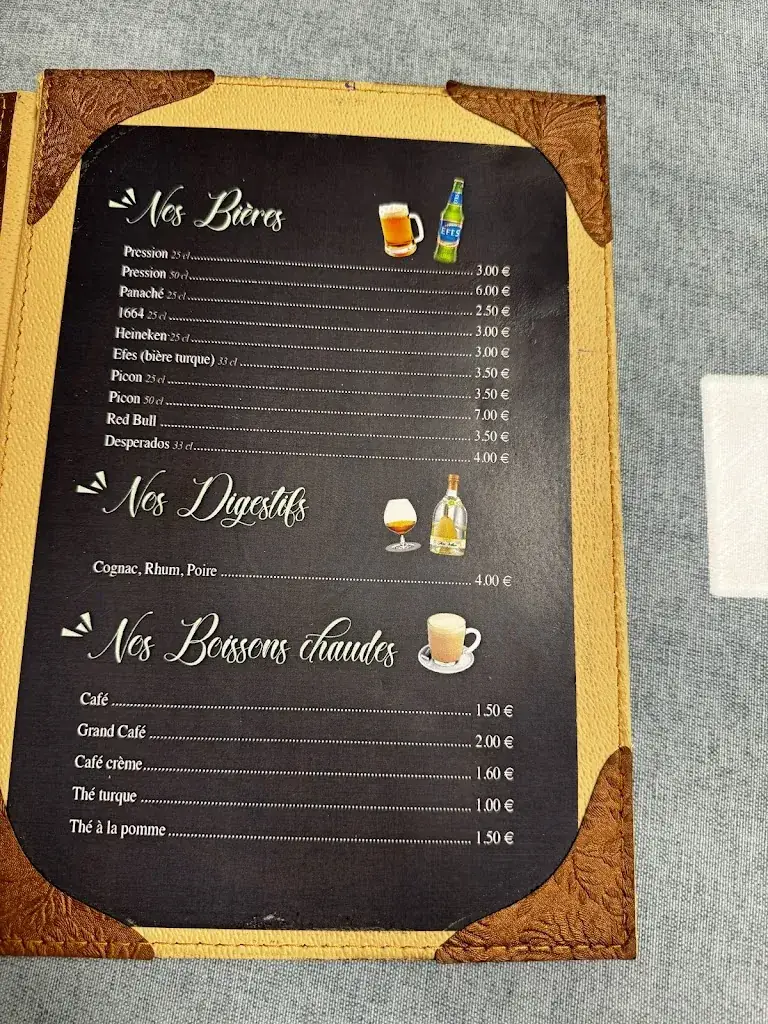 Nos Bières
EFES
Pression 25 cl 3.00 €
Pression 50 cl 6.00 €
Panaché 25 cl 2.50 €
1664 25 cl 3.00 €
Heineken 25 cl 3.00 €
Efes (bière turque) 33 cl 3.50 €
Picon 25 cl 3.50 €
Picon 50 cl 7.00 €
Red Bull 3.50 €
Desperados 33 cl 4.00 €
Nos Digestifs
Cognac, Rhum, Poire 4.00 €
Nos Boissons chaudes
Café 1.50 €
Grand Café 2.00 €
Café crème 1.60 €
Thé turque 1.00 €
Thé à la pomme 1.50 €